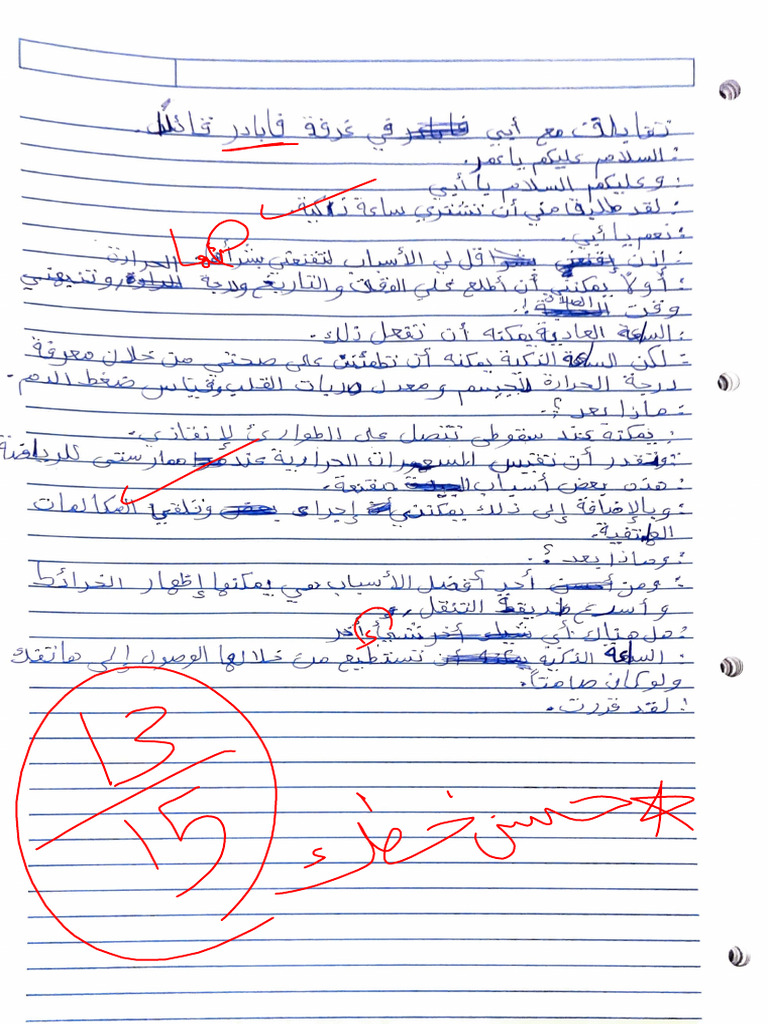 تقابلت مع أبي في غرفة فابادر قائلاً.
: السلام عليكم يا عمر.
: وعليكم السلام يا أبي
: لقد طلبت مني أن تشتري ساعة ذكية.
: نعم يا أبي.
: إذن قل لي الأسباب لتقنعني بشرائها
: أولاً يمكنني أن أطلع على الوقت والتاريخ ودرجة الحرارة وتنبهني
وقت الصلاة!.
: الساعة العادية يمكنه أن تفعل ذلك.
: لكن الساعة الذكية يمكنه أن تطمئن على صحتي من خلال معرفة
درجة الحرارة لجسم ومعدل ضربات القلب وقياس ضغط الدم.
: ماذا بعد ؟.
: يمكنه عند سقوطي تتصل على الطوارئ لإنقاذي.
: وتقدر أن تقيس السعرات الحرارية عند ممارستي للرياضة
: هذه بعض أسباب مقنعة.
: وبالإضافة إلى ذلك يمكنني إجراء وتلقي المكالمات
الهتفية.
: وماذا بعد ؟.
: ومن أحد أفضل الأسباب هي يمكنها إظهار الخرائط
و أسرع طريقة التنقل.
: هل هناك أي شيء أخر
: الساعة الذكية تستطيع من خلالها الوصول إلى هاتفك
ولو كان صامتاً.
: لقد قررت.
13
15
* حسن خطك